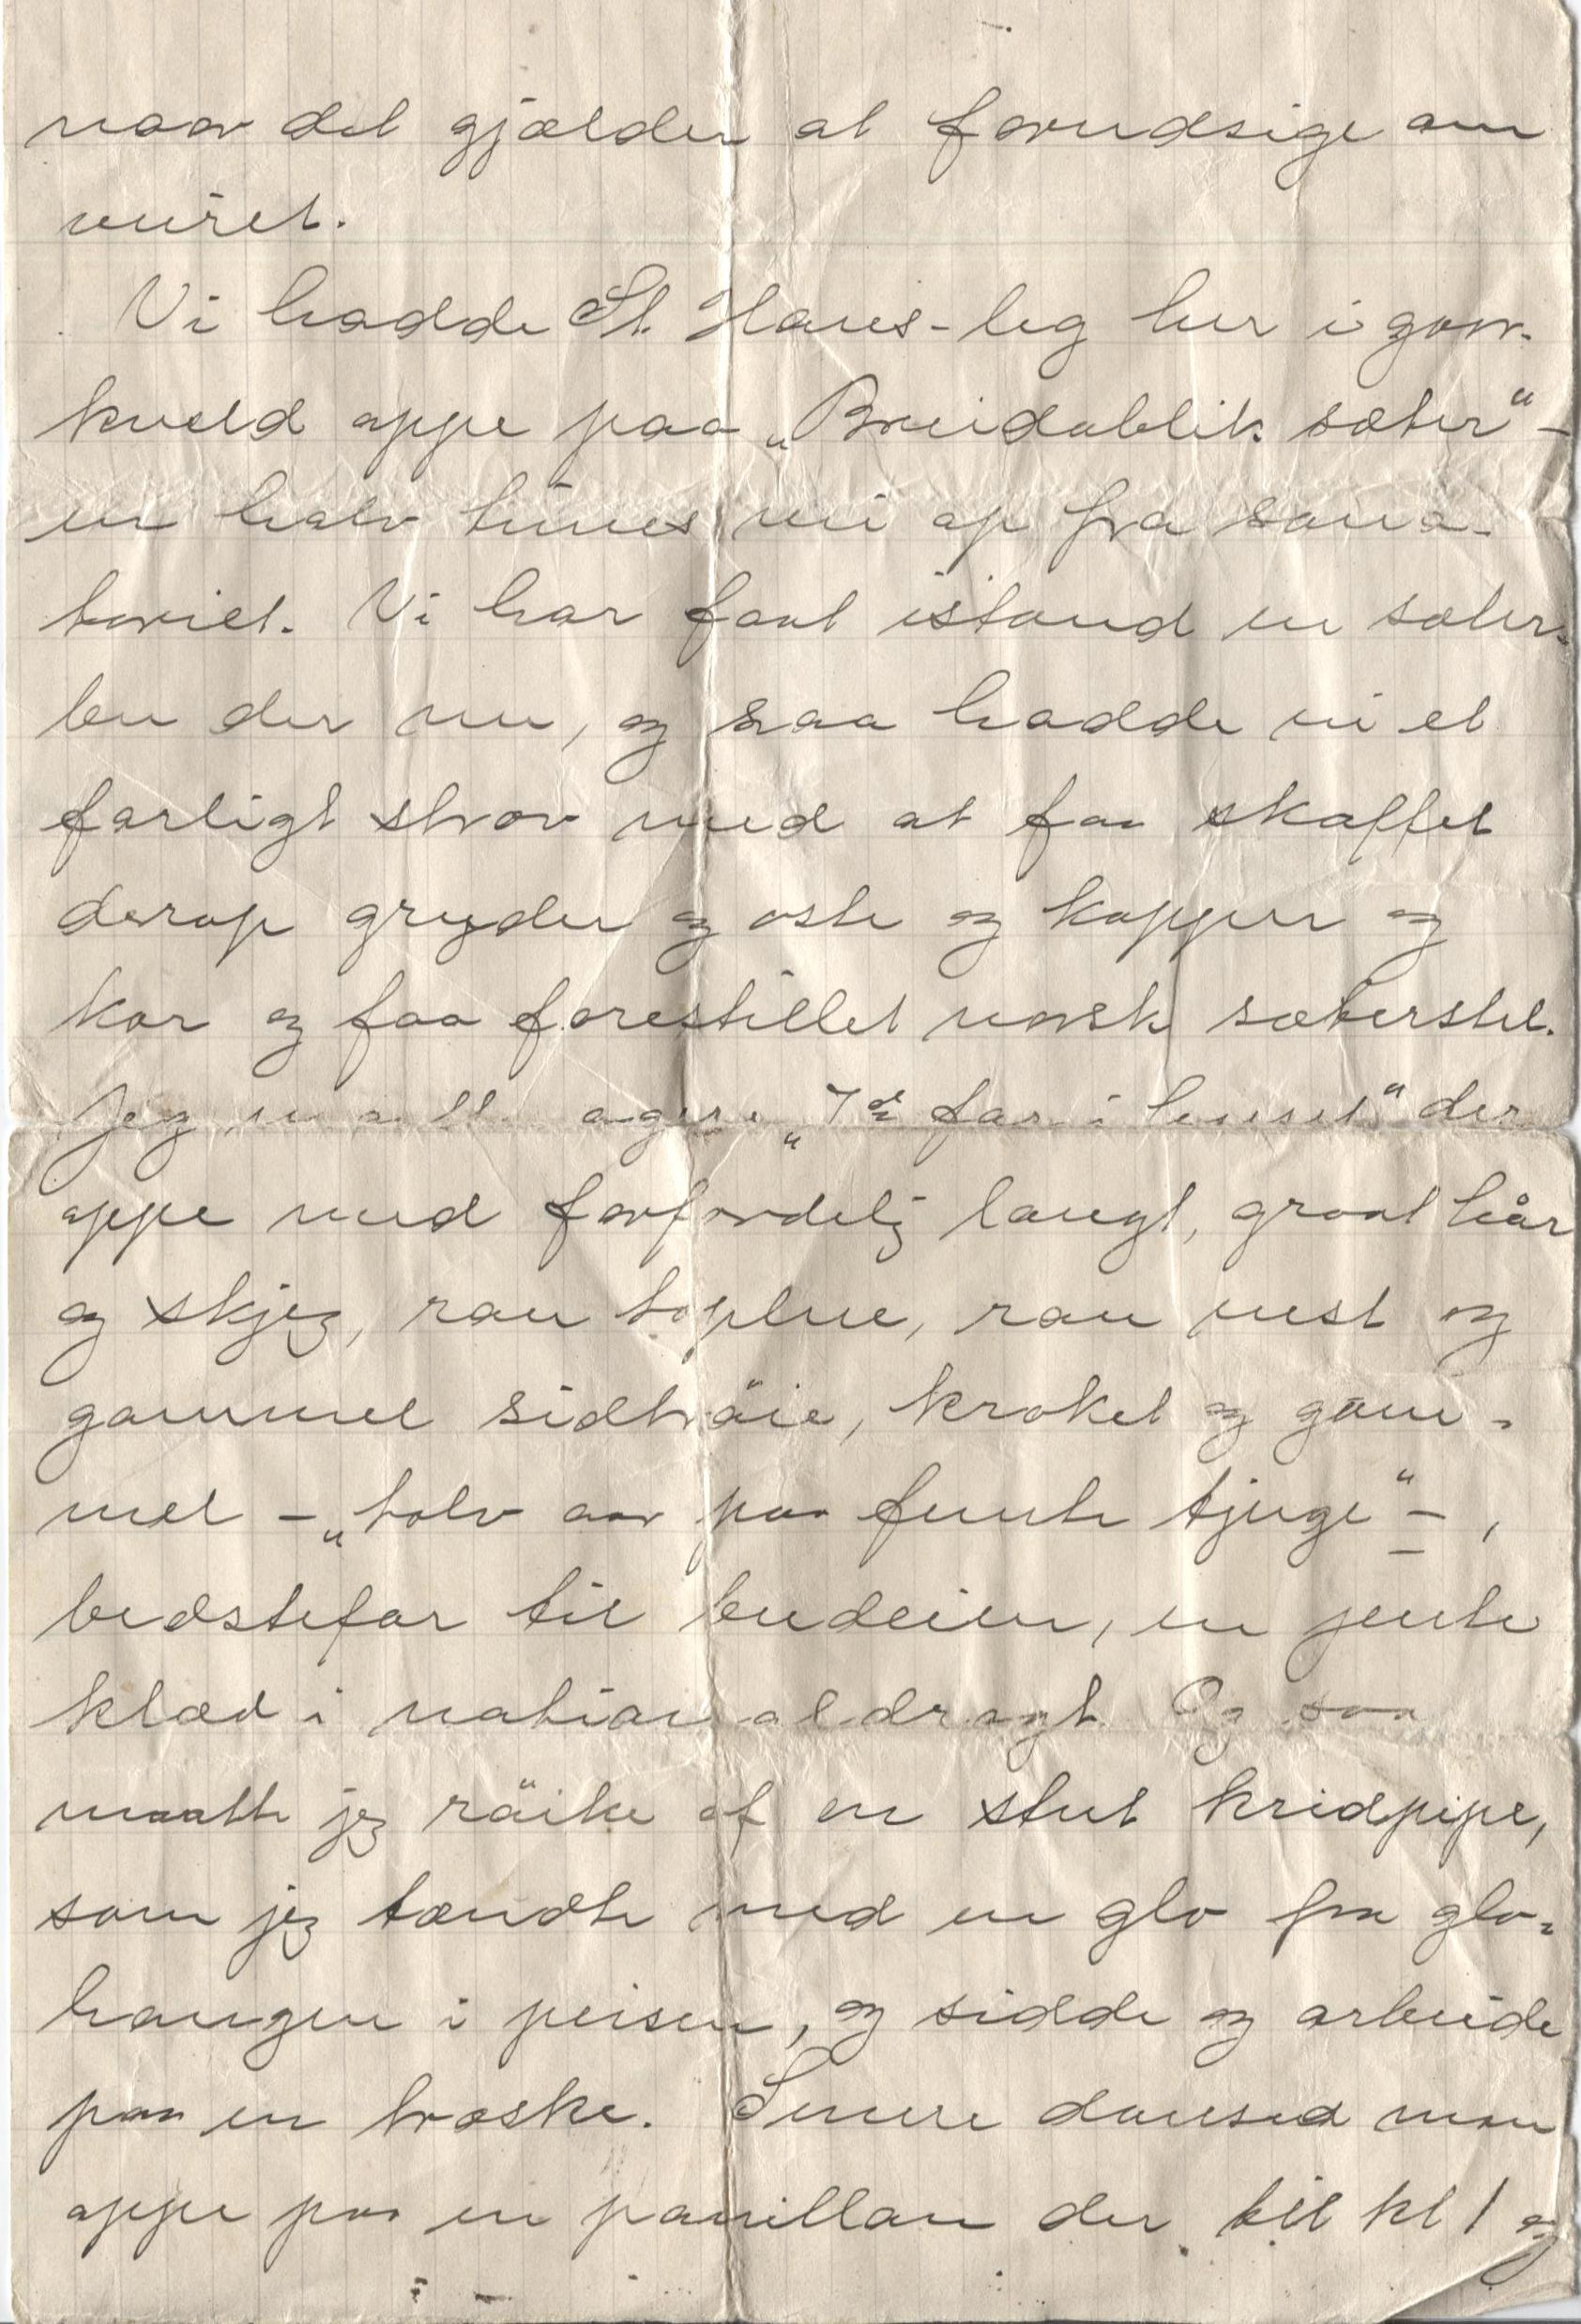 naar det gjælder at forudsige om
veiret.
Vi hadde St. Hans-leg her i gaar-
kveld oppe paa „Breidablik sæter" -
en halv times vei op fra sana-
toriet. Vi har faat istand en sæter-
bu der nu, og saa hadde vi et
farligt stræv med at faa skaffet
derop gryder og oste og kopper og
kar og faa forestillet norsk sæterstel.
Jeg maatte agere „7de far i huset" der
oppe med forfærdelig langt, graat hår
og skjeg, rau toplue, rau vest og
gammel sidtrøie, kroket og gam-
mel - „tolv aar paa femte tjuge" -,
bedstefar til budeien, en jente
klæd i nationaldragt. Og saa
maatte jeg røike af en stut kridpipe,
som jeg tændte med en glo fra glo-
haugen i peisen, og sidde og arbeide
paa en træske. Senere dansed man
oppe paa en pavillon der til kl 1 og